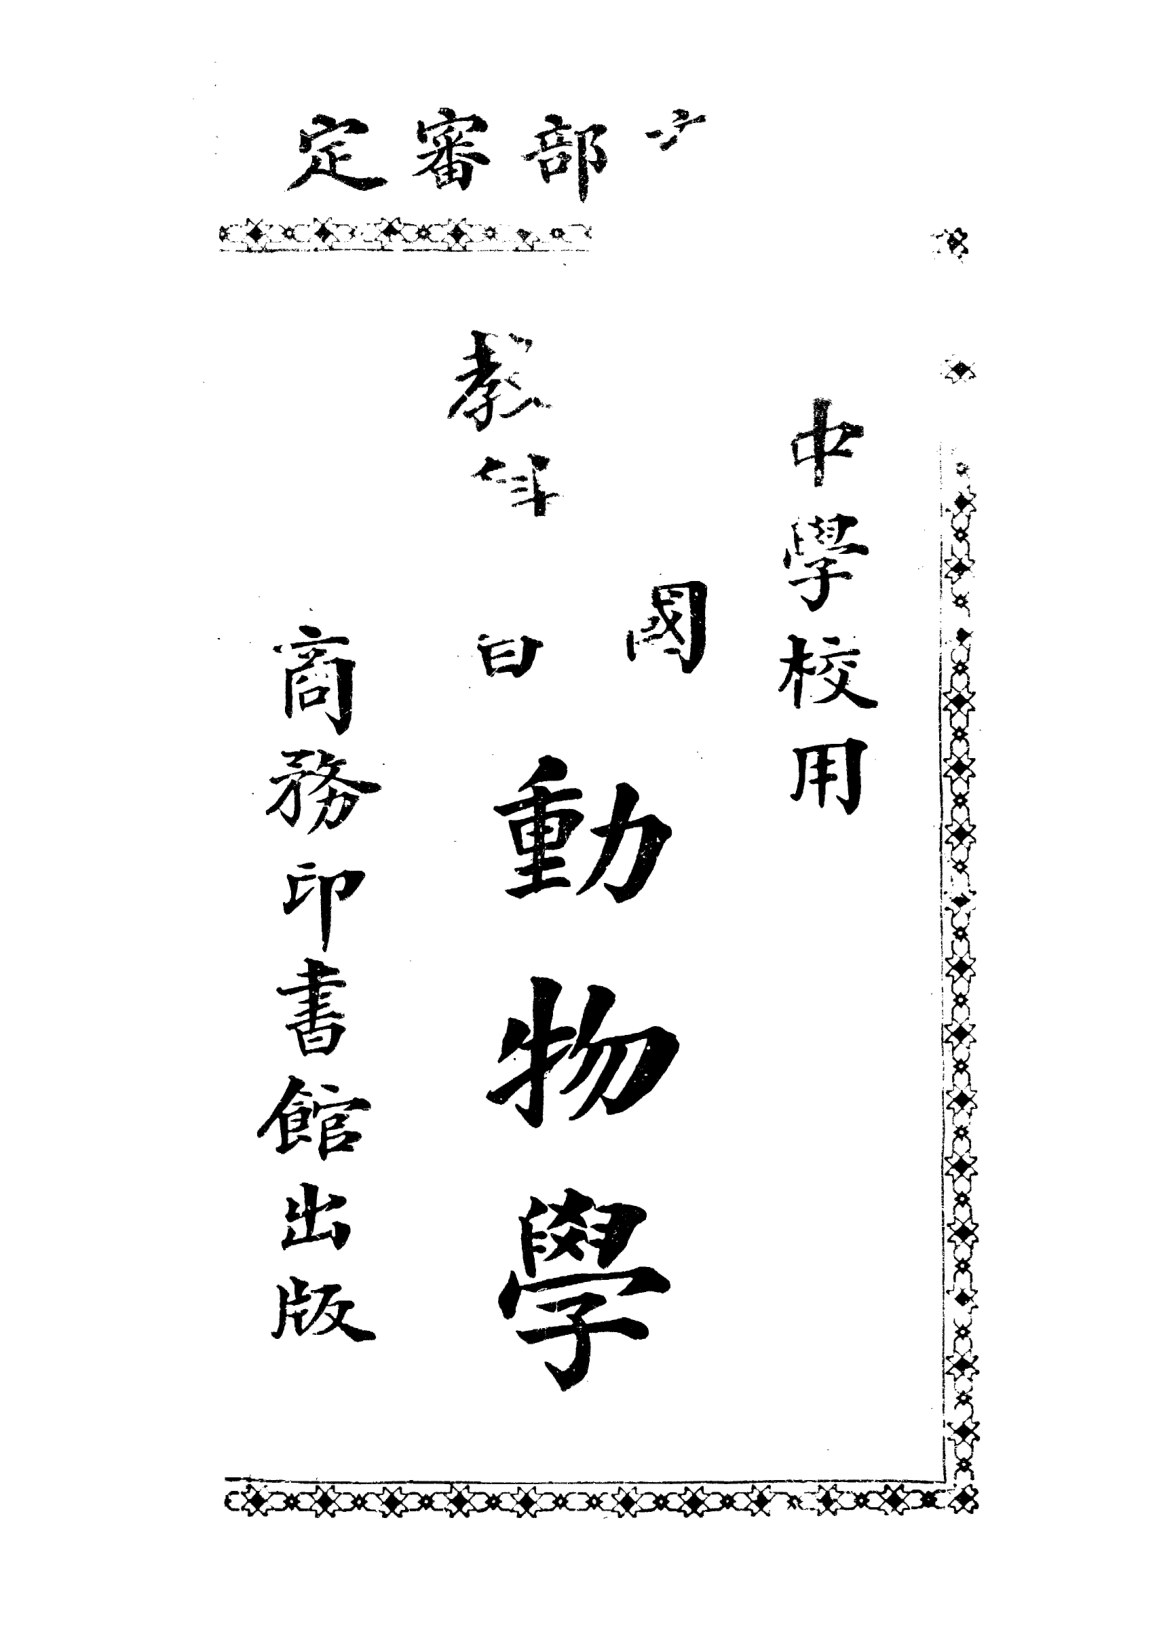 部審定
中學校用
國
教科
動物學
商務印書館出版